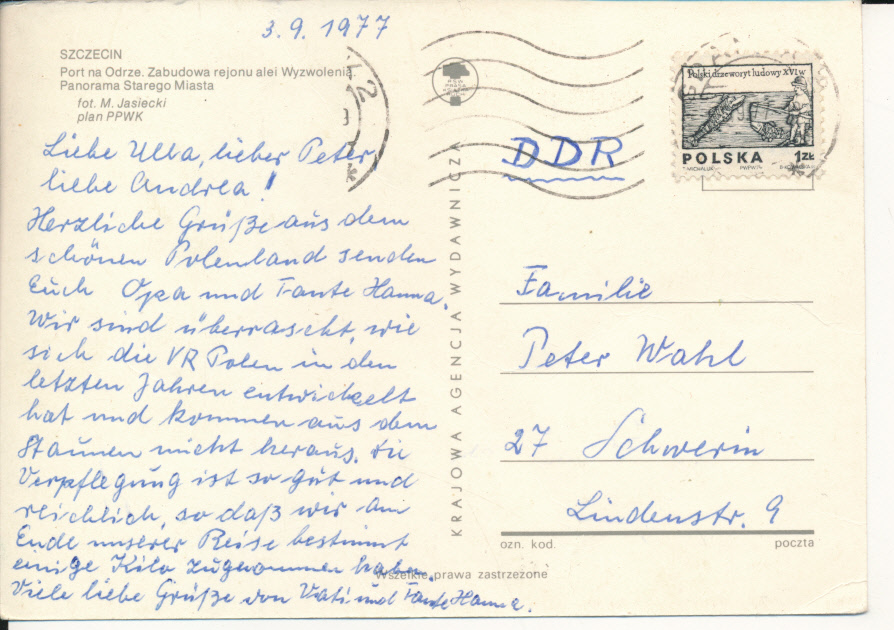 3.9.1977
SZCZECIN
Port na Odrze. Zabudowa rejonu alei Wyzwolenia.
Panorama Starego Miasta
fot. M. Jasiecki
plan PPWK
Liebe Ulla, lieber Peter,
liebe Andrea!
Herzliche Grüße aus dem
schönen Polenland senden
Euch Opa und Tante Hanna.
Wir sind überrascht, wie
sich die VR Polen in den
letzten Jahren entwickelt
hat und kommen aus dem
Staunen nicht heraus. Die
Verpflegung ist so gut und
reichlich, so daß wir am
Ende unserer Reise bestimmt
einige Kilo zugenommen haben.
Viele liebe Grüße von Vati und Tante Hanna.
KRAJOWA AGENCJA WYDAWNICZA
Polski drzeworyt ludowy XVI w
POLSKA 1 ZŁ
DDR
Familie
Peter Wahl
27 Schwerin
Lindenstr. 9
ozn. kod. poczta
Wszelkie prawa zastrzeżone